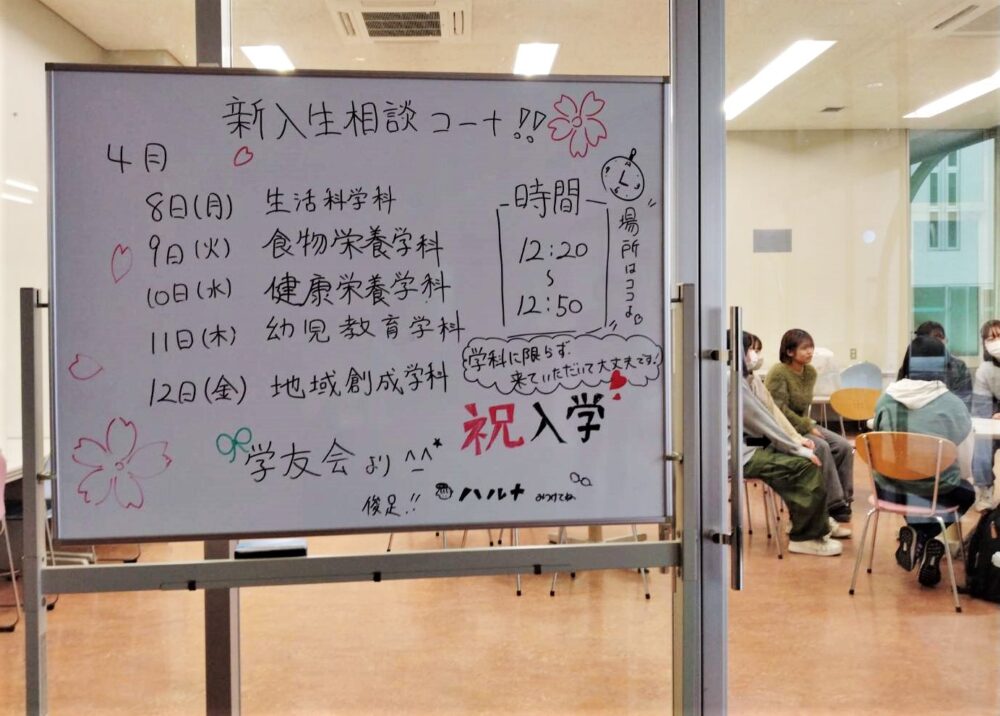 新入生相談コーナ!!
4月
8日(月) 生活科学科
9日(火) 食物栄養学科
10日(水) 健康栄養学科
11日(木) 幼児教育学科
12日(金) 地域創成学科
時間
12:20
~
12:50
場所はココよ。
学科に限らず、
来ていただいて大丈夫です!
祝入学
学友会より ^_^
俊足!! ハルナ みつけてね